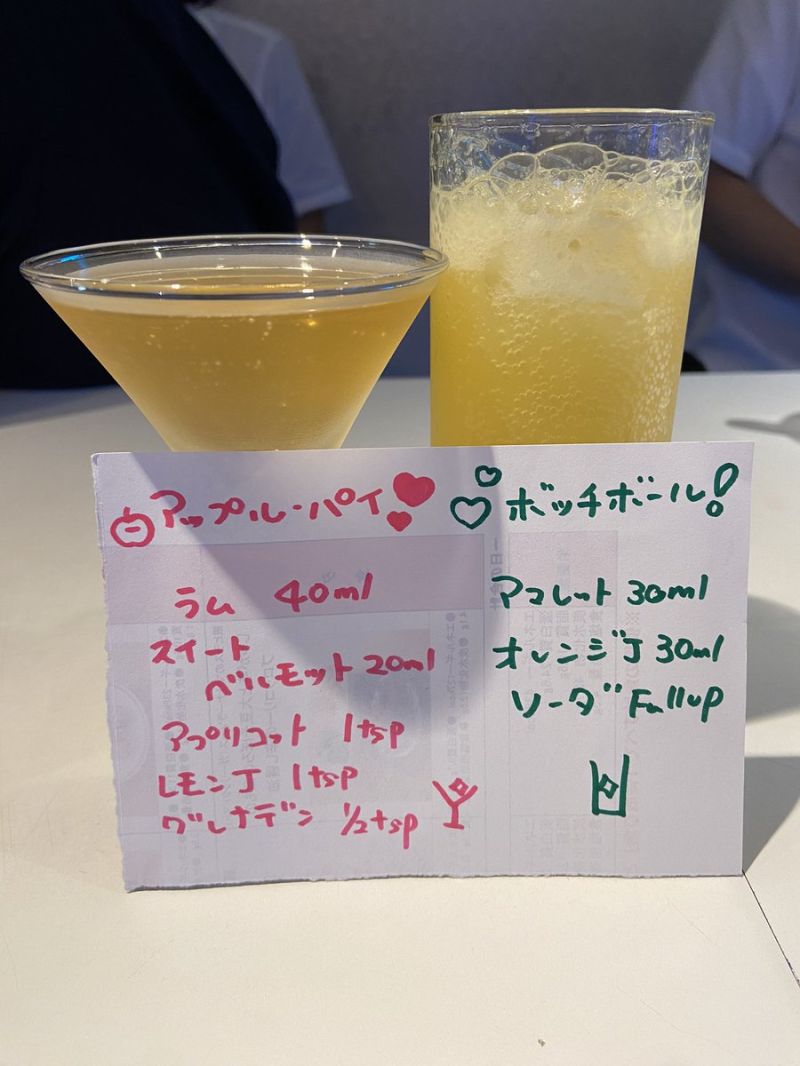 アップル・パイ
ラム 40ml
スイート
ベルモット 20ml
アプリコット 1tsp
レモンJ 1tsp
グレナデン 1/2tsp
ボッチボール!
アマレット 30ml
オレンジJ 30ml
ソーダ Fullup